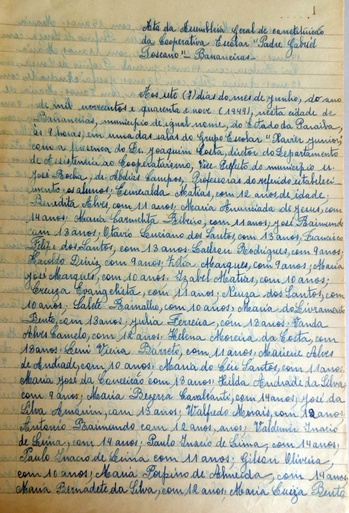 1
Ata da Assembléia Geral de constituição
da Cooperativa Escolar "Padre Gabriel
Toscano" - Bananeiras -
Aos oito (8) dias do mes de junho, do ano
de mil novecentos e quarenta e nove (1949), nesta cidade de
Bananeiras, municipio de igual nome, do Estado da Paraíba,
às 9 horas, em uma das salas do Grupo Escolar "Xavier Junior",
com a presença do Dr. Joaquim Costa, diretor do Departamento
de Assistencia ao Cooperativismo, Vice-Prefeito do municipio sr.
José Rocha, de Abdias Campos, Professoras do referido estabeleci-
mento, os alunos: Esmeralda Matias, com 12 anos de idade,
Benedita Alves, com 11 anos; Maria Anunciada de Jesus, com
14 anos; Maria Carmelita Ribeiro, com 11 anos; José Raimundo
com 13 anos; Otavio Luciano dos Santos, com 13 anos; Francisco
Felix dos Santos, com 13 anos; Rodrigues, com 9 anos;
Haroldo Diniz, com 9 anos; Marques, com 9 anos; Maria
José Marques, com 10 anos; Izabel Matias, com 10 anos;
Creuza Evangelista, com 11 anos; Neuza dos Santos, com
10 anos; Salete Ramalho, com 10 anos; Maria do Livramento
Bento, com 13 anos; Julia Ferreira, com 13 anos; Vanda
Alves Camelo, com 12 anos; Helena Moreira da Costa, com
13 anos; Leni Vieira Barreto, com 11 anos; Alves
de Andrade, com 10 anos; Maria do Ceu Santos, com 11 anos;
Maria José da Conceição com 13 anos; Hilda Andrade da Silva
com 9 anos; Maria Bezerra Cavalcanti, com 14 anos; José da
Silva Amorim, com 13 anos; Valfredo Morais, com 12 anos;
Antonio Raimundo com 12 anos; Valdemir Inacio
de Lima, com 14 anos; Paulo Inacio de Lima, com 14 anos;
Paulo Inacio de Lima com 11 anos; Gilson Oliveira,
com 10 anos; Maria Porpino de Almeida, com 14 anos;
Maria Bernadete da Silva, com 12 anos; Maria Bento